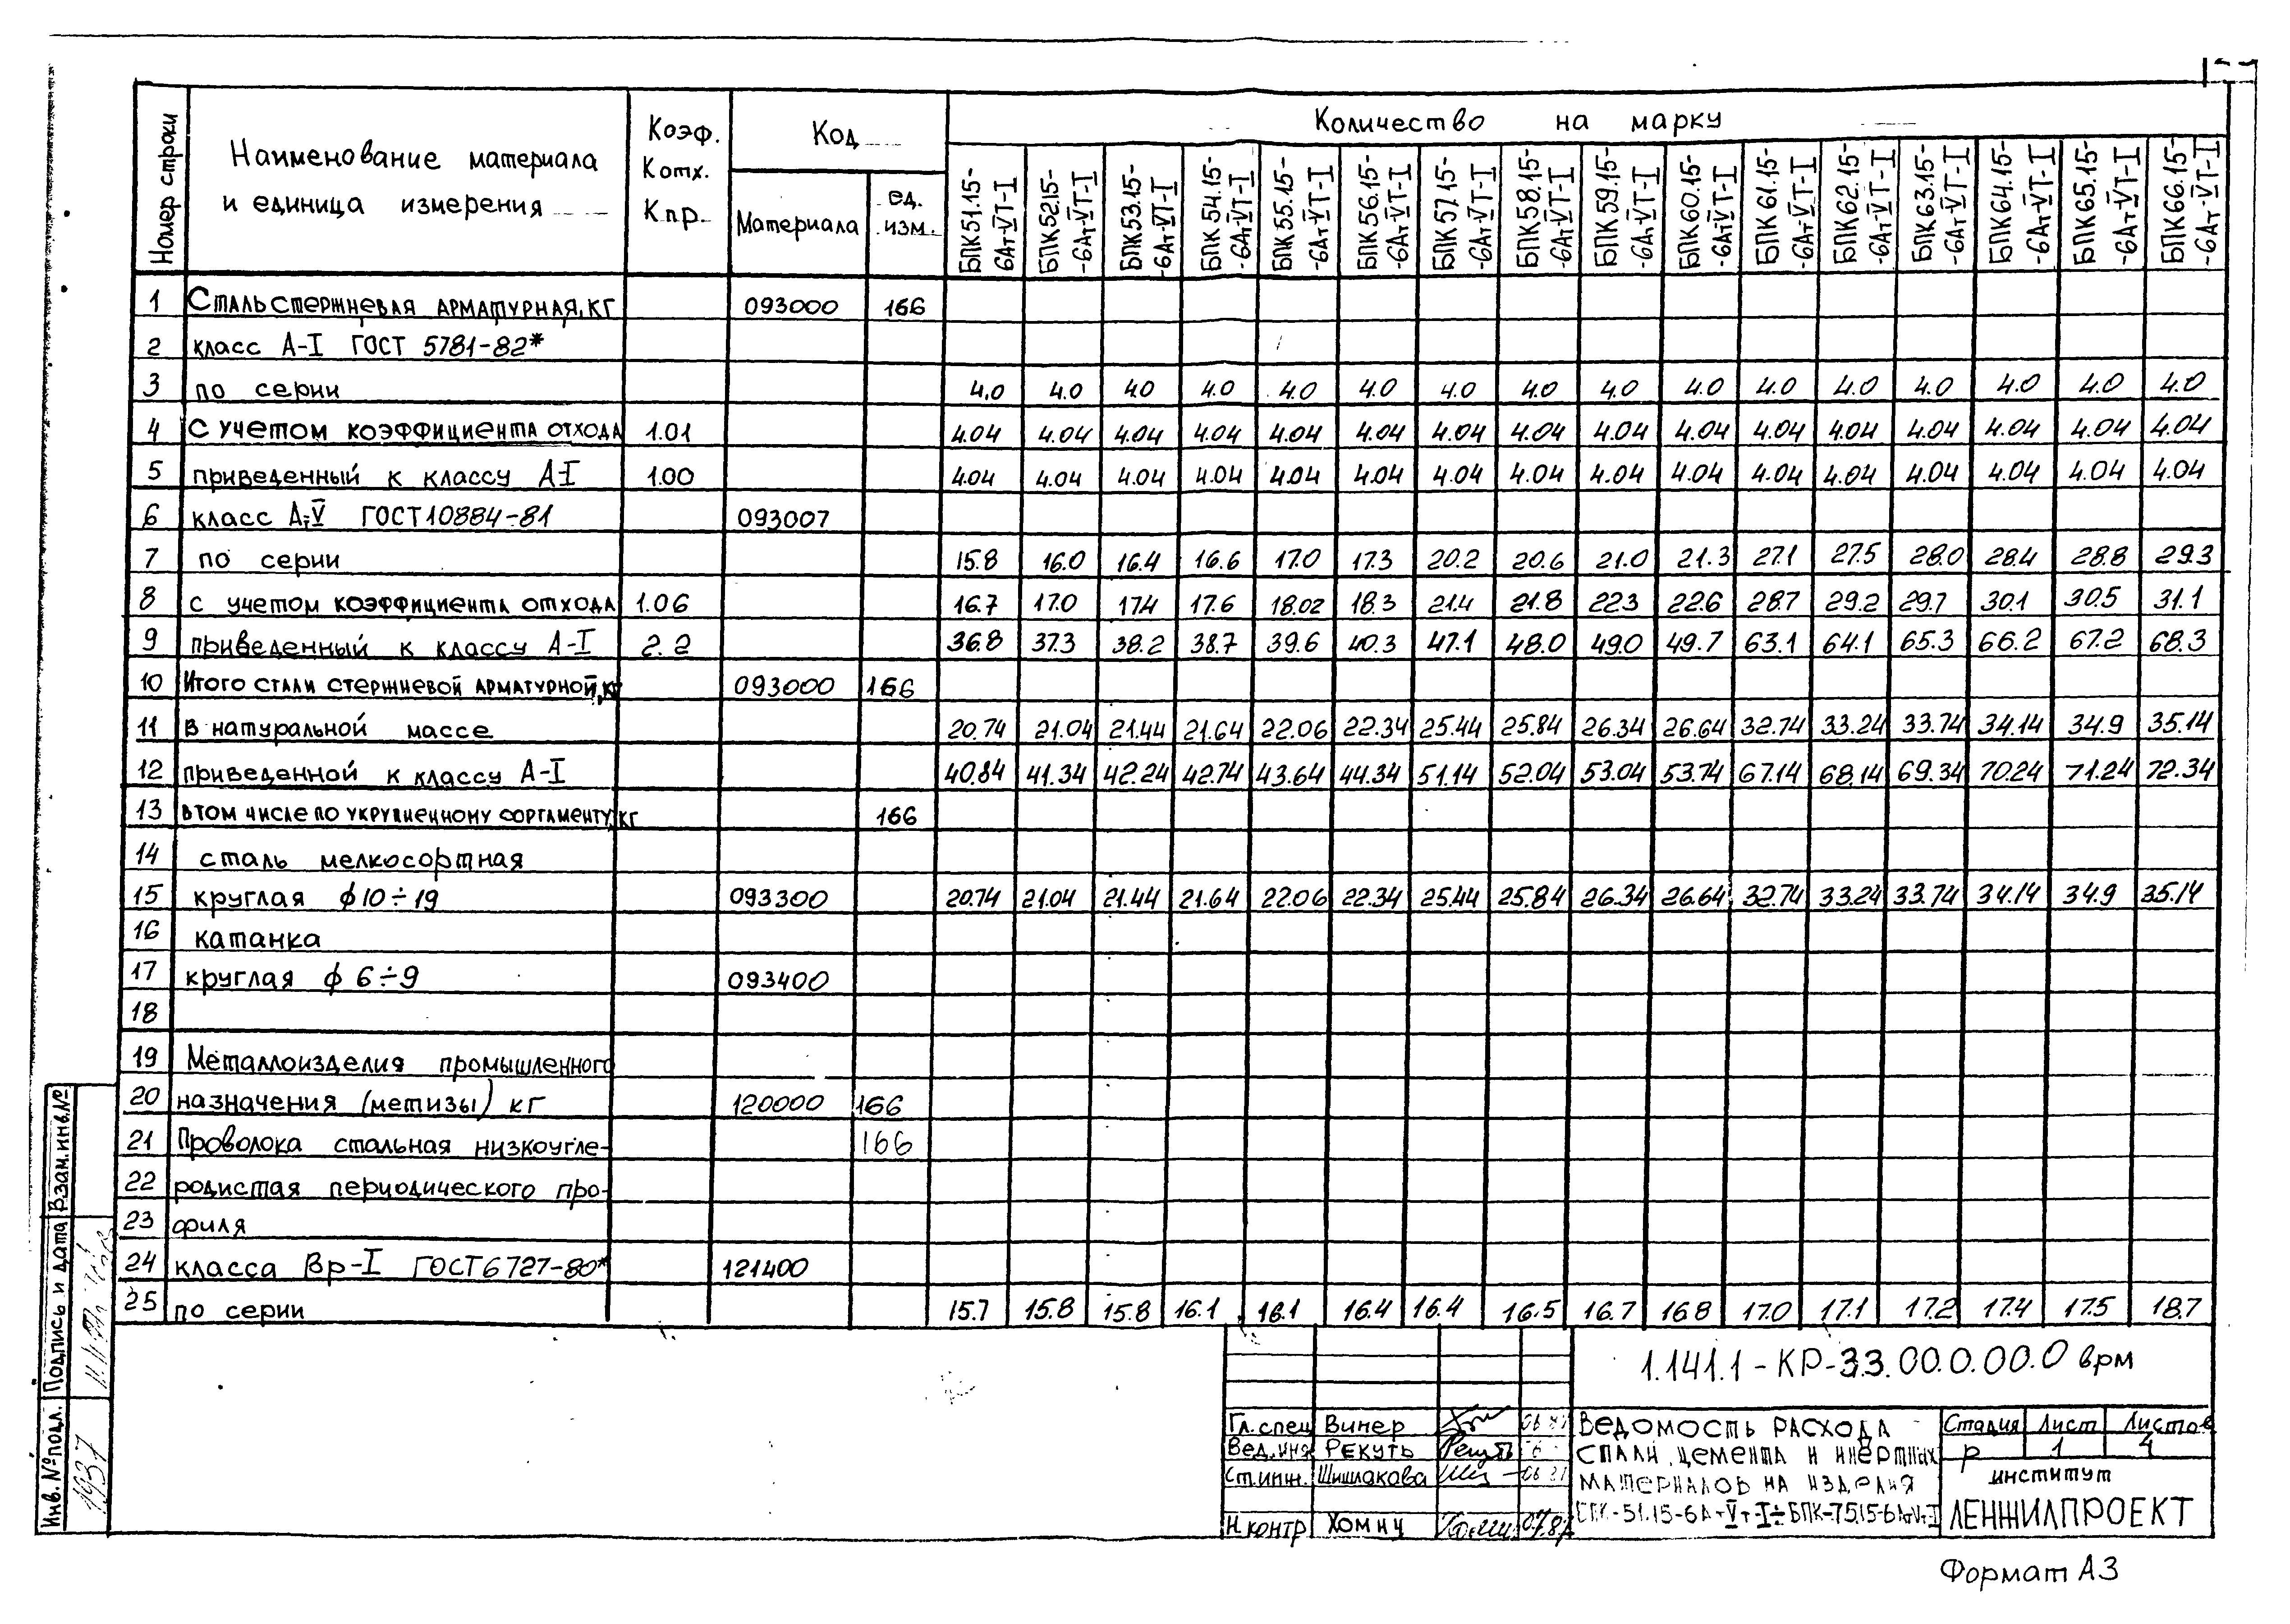 Номер строки
Наименование материала
и единица измерения
Коэф.
Котх.
Кпр.
Код
Материала
ед.
изм.
Количество на марку
БПК51.15-
6Ат-VТ-I
БПК52.15-
-6Ат-VТ-I
БПК53.15-
-6Ат-VТ-I
БПК54.15-
-6Ат-VТ-I
БПК55.15-
-6Ат-VТ-I
БПК56.15-
-6Ат-VТ-I
БПК57.15-
-6Ат-VТ-I
БПК58.15-
-6Ат-VТ-I
БПК59.15-
-6Ат-VТ-I
БПК60.15-
-6Ат-VТ-I
БПК61.15-
-6Ат-VТ-I
БПК62.15-
-6Ат-VТ-I
БПК63.15-
-6Ат-VТ-I
БПК64.15-
-6Ат-VТ-I
БПК65.15-
-6Ат-VТ-I
БПК66.15-
-6Ат-VТ-I
1 Сталь стержневая арматурная, кг 093000 166
2 класс А-I ГОСТ 5781-82*
3 по серии 4.0 4.0 4.0 4.0 4.0 4.0 4.0 4.0 4.0 4.0 4.0 4.0 4.0 4.0 4.0 4.0
4 с учетом коэффициента отхода 1.01 4.04 4.04 4.04 4.04 4.04 4.04 4.04 4.04 4.04 4.04 4.04 4.04 4.04 4.04 4.04 4.04
5 приведенный к классу А-I 1.00 4.04 4.04 4.04 4.04 4.04 4.04 4.04 4.04 4.04 4.04 4.04 4.04 4.04 4.04 4.04 4.04
6 класс Ат-V ГОСТ10884-81 093007
7 по серии 15.8 16.0 16.4 16.6 17.0 17.3 20.2 20.6 21.0 21.3 27.1 27.5 28.0 28.4 28.8 29.3
8 с учетом коэффициента отхода 1.06 16.7 17.0 17.4 17.6 18.02 18.3 21.4 21.8 22.3 22.6 28.7 29.2 29.7 30.1 30.5 31.1
9 приведенный к классу А-I 2.2 36.8 37.3 38.2 38.7 39.6 40.3 47.1 48.0 49.0 49.7 63.1 64.1 65.3 66.2 67.2 68.3
10 Итого стали стержневой арматурной, кг 093000 166
11 в натуральной массе 20.74 21.04 21.44 21.64 22.06 22.34 25.44 25.84 26.34 26.64 32.74 33.24 33.74 34.14 34.9 35.14
12 приведенной к классу А-I 40.84 41.34 42.24 42.74 43.64 44.34 51.14 52.04 53.04 53.74 67.14 68.14 69.34 70.24 71.24 72.34
13 в том числе по укрупненному сортаменту, кг 166
14 сталь мелкосортная
15 круглая ϕ10÷19 093300 20.74 21.04 21.44 21.64 22.06 22.34 25.44 25.84 26.34 26.64 32.74 33.24 33.74 34.14 34.9 35.14
16 катанка
17 круглая ϕ 6÷9 093400
18
19 Металлоизделия промышленного
20 назначения (метизы) кг 120000 166
21 Проволока стальная низкоугле- 166
22 родистая периодического про-
23 филя
24 класса Вр-I ГОСТ6727-80* 121400
25 по серии 15.7 15.8 15.8 16.1 16.1 16.4 16.4 16.5 16.7 16.8 17.0 17.1 17.2 17.4 17.5 18.7
Взам.инв.№
Подпись и дата
Инв.№подл.
1937
1.141.1-КР-33.00.0.00.0 врм
Гл.спец Винер
Вед.инж Рекуть
Ст.инж. Шишлакова
Н.контр Хомич
Ведомость расхода
стали, цемента и инертных
материалов на изделия
БПК-51.15-6Ат-Vт-I÷БПК-75.15-6АтVт-I
Стадия Лист Листов
Р 1 4
институт
ЛЕНЖИЛПРОЕКТ
Формат А3